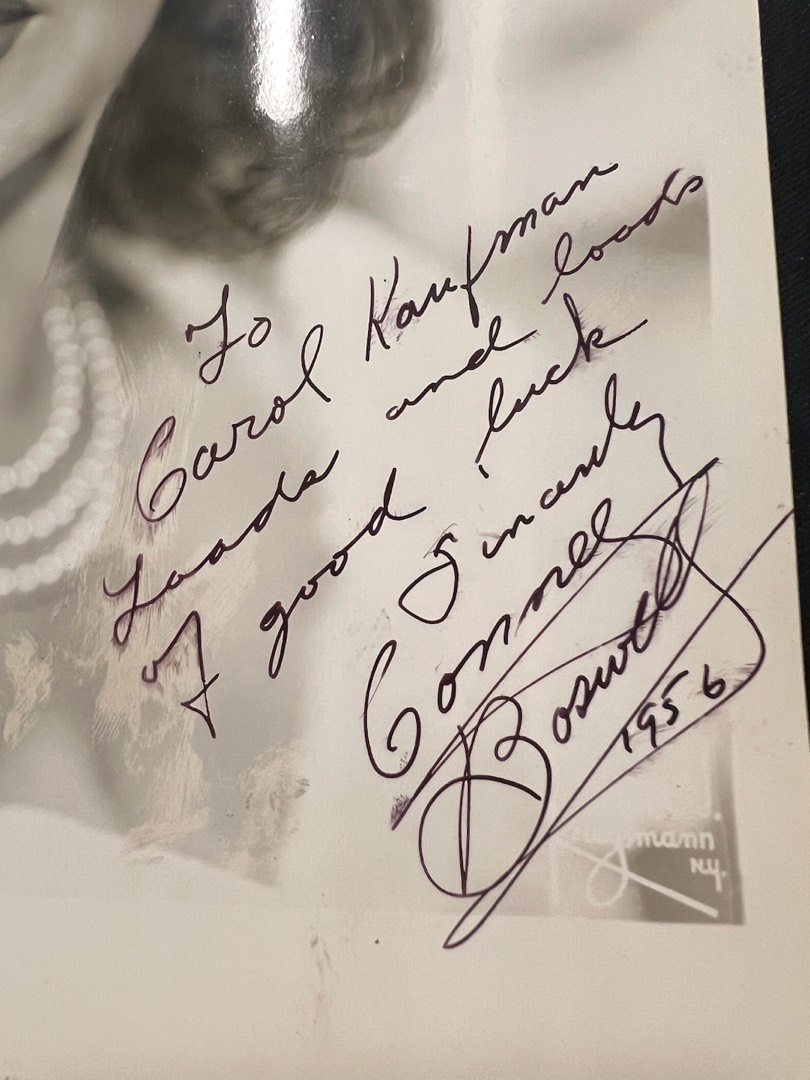 To
Carol Kaufman
Loads and loads
of good luck
Sincerely
Connee
Boswell
1956
N.Y.